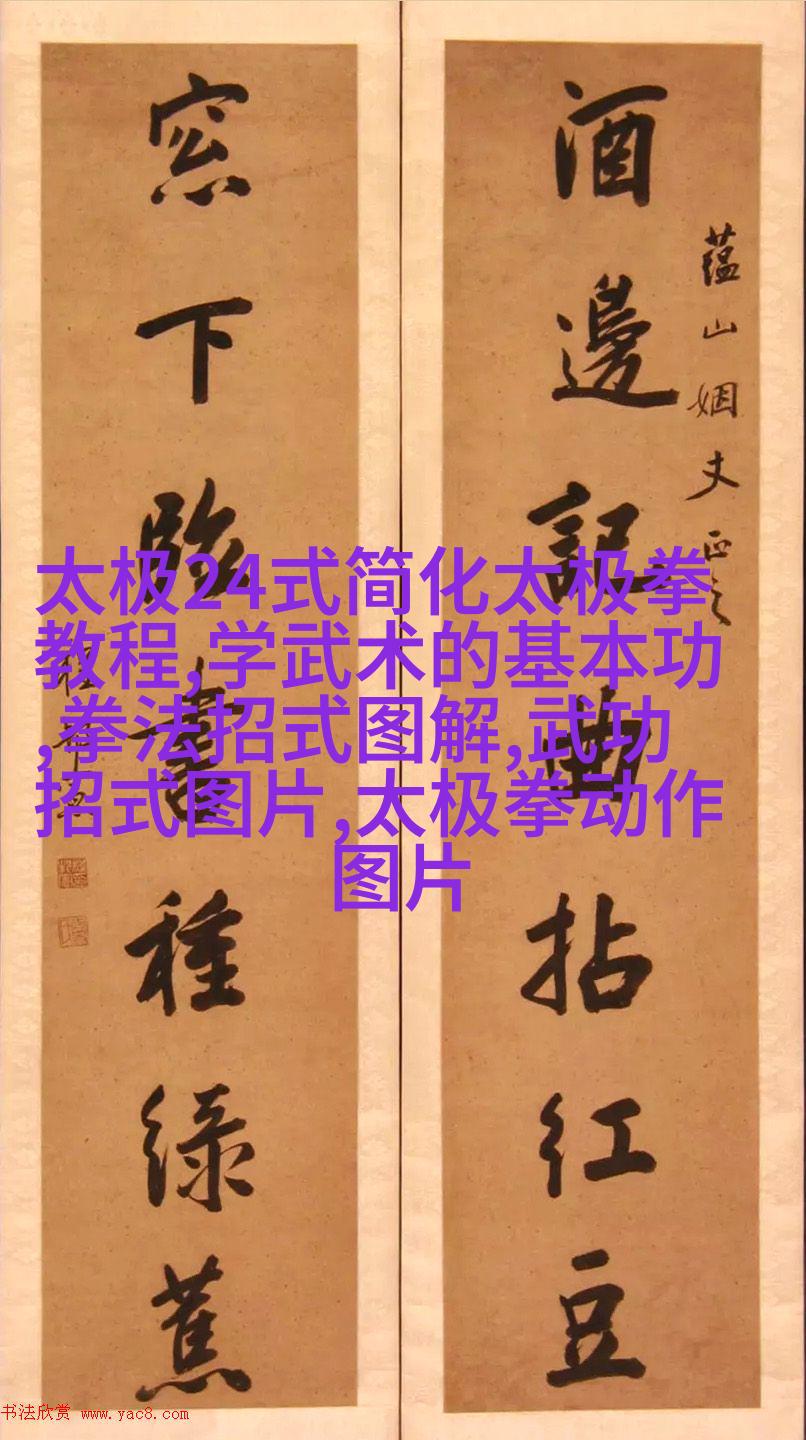 酒邊記曲拈紅豆
蘊山姻丈正之
窓下臨書種綠蕉
太极24式简化太极拳
教程,学武术的基本功
,拳法招式图解,武功
招式图片,太极拳动作
图片
书法欣赏 www.yac8.com